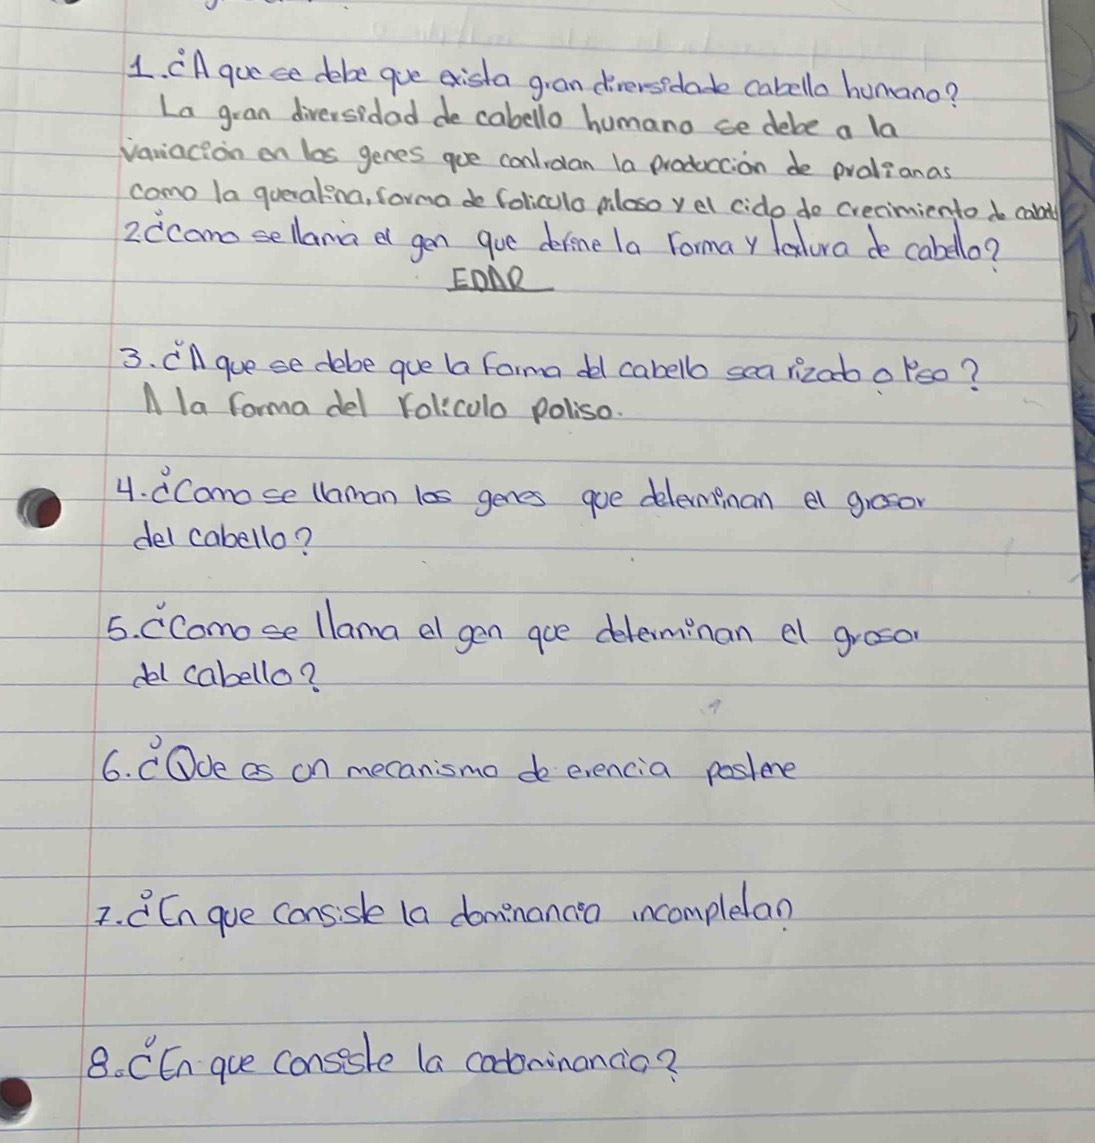 1. ¿A que se debe que exista gran diversidad de cabello humano?
La gran diversidad de cabello humano se debe a la
variación en los genes que controlan la producción de prolianas
como la queralina, forma de foliculo piloso y el ciclo de crecimiento de cabello
2 ¿como se llama el gen que define la forma y textura de cabello?
EDAR
3. ¿A que se debe que la forma del cabello sea rizado o liso?
A la forma del foliculo poliso.
4. ¿Como se llaman los genes que determinan el grosor
del cabello?
5. ¿Como se llama el gen que determinan el grosor
del cabello?
6. ¿Que es un mecanismo de erencia postene
7. ¿En que consiste la dominancia incompleta?
8. ¿En que consiste la codominancia?